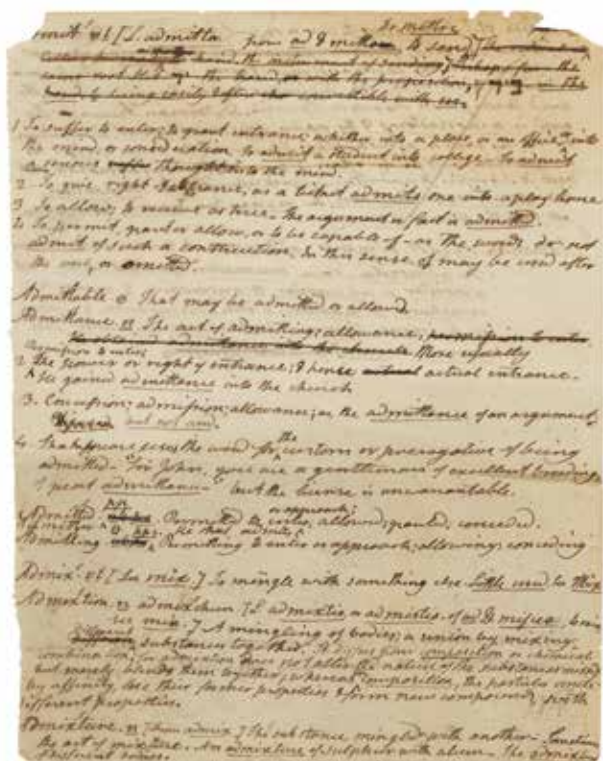 Fr. mettre
admit' vt [L. admitto from ad & mitto, to send]
hand, the instrument of sending; perhaps from the
same root the hand, or with the preposition, in the
1 To suffer to enter; to grant entrance; whether into a place, or an office, or into
the mind, or consideration, to admit a student into college. To admit
a serious thought into the mind.
2 To give right of entrance, as a ticket admits one into a play house
3 To allow; to receive as true. The argument or fact is admitted.
4 To permit, grant or allow, or to be capable of - as the words do not
admit of such a construction. In this sense of may be used after
the verb, or omitted.
Admittable a That may be admitted or allowed
Admittance n The act of admitting; allowance; permission to enter.
More usually
permission to enter;
2 The power or right of entrance; & hence actual actual entrance.
He gained admittance into the church
3. Concession; admission; allowance; as the admittance of an argument.
but not used.
4. Shakspeare uses the word for the custom or prerogative of being
admitted - "Sir John, you are a gentleman of excellent breeding
of great admittance - " but the license is unwarrantable.
or approach;
Admitted pp. Permitted to enter, allowed; granted; conceded.
Admitter n He that admits
Admitting ppr. Permitting to enter or approach; allowing; conceding
Admix' vt [See mix.] To mingle with something else Little used
Admixtion n admixchun [L admixtio or admistio, of ad & misceo,
see mix.] A mingling of bodies; a union by mixing
different substances together. It differs from composition or chemical
combination; for admixtion does not alter the nature of the substances mixed
but merely blends them together; whereas composition, the particles unite
by affinity, lose their former properties & form new compounds, with
different properties.
Admixture. n [from admix] The substance mingled with another - Sometimes
the act of mixture. An admixture of sulphur with alum - The admixture
of different